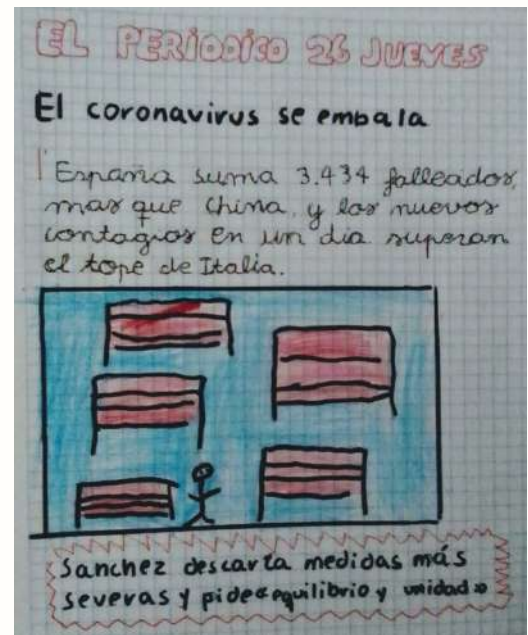 EL PERIODICO 26 JUEVES
El coronavirus se embala
España suma 3.434 falleados,
mas que China, y los nuevos
contagios en un dia superan
el tope de Italia.
Sanchez descarta medidas más
severas y pide «equilibrio y unidad»